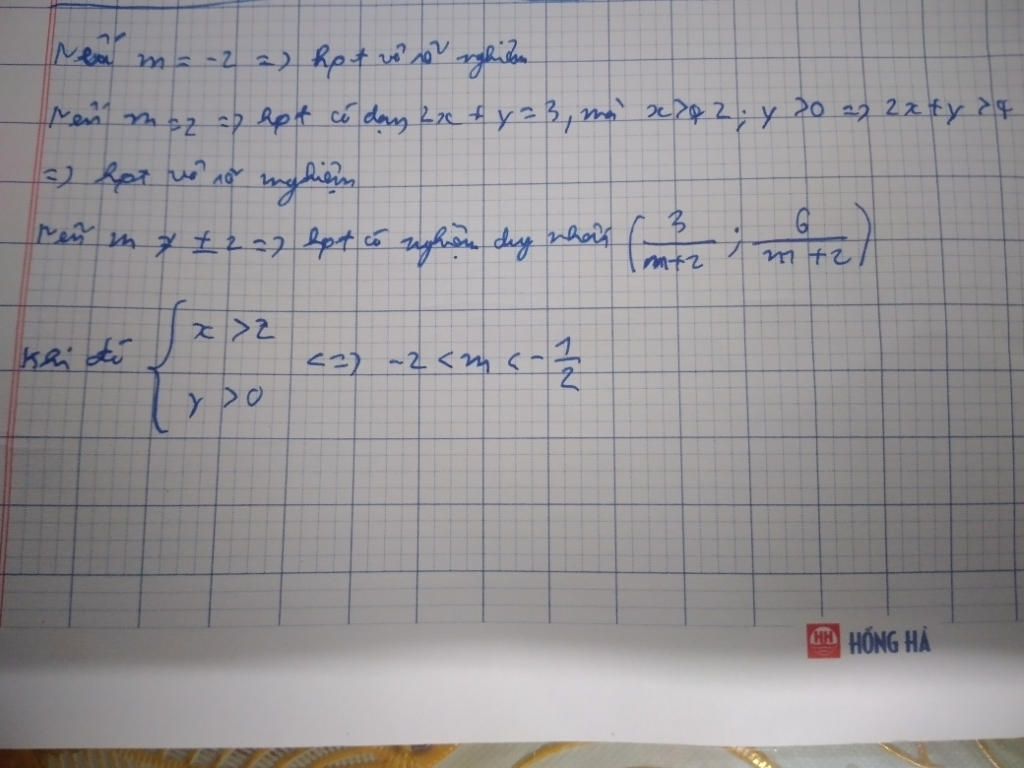 Nếu m = -2 => hpt vô số nghiệm
Nếu m = 2 => hpt có dạng 2x + y = 3, mà x > 2; y > 0 => 2x + y > 4
=> hpt vô số nghiệm
Nếu m ≠ ± 2 => hpt có nghiệm duy nhất (3/(m+2); 6/(m+2))
Khi đó { x > 2 ; y > 0 <=> -2 < m < -1/2
HỒNG HÀ